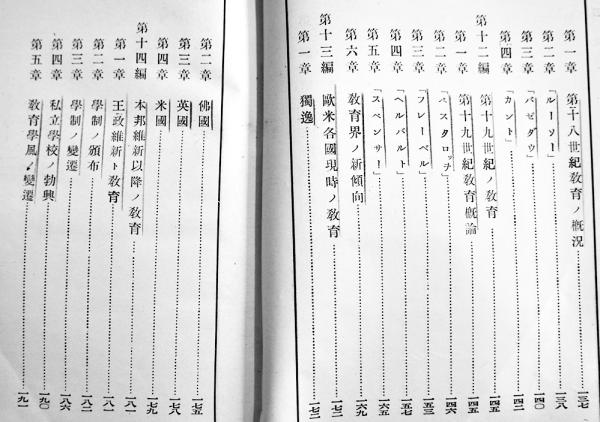 第一章 第十八世紀教育ノ概況 一三七
第二章 「ルーソー」 一三八
第三章 「バゼダウ」 一四〇
第四章 「カント」 一四二
第十二編 第十九世紀ノ教育 一四五
第一章 第十九世紀教育概論 一四五
第二章 「ペスタロッチ」 一四六
第三章 「フレーベル」 一五三
第四章 「ヘルバルト」 一五七
第五章 「スペンサー」 一六五
第六章 教育界ノ新傾向 一六九
第十三編 歐米各國現時ノ教育 一七二
第一章 獨逸 一七二
第二章 佛國 一七五
第三章 英國 一七八
第四章 米國 一七九
第十四編 本邦維新以降ノ教育 一八一
第一章 王政維新ト教育 一八一
第二章 學制ノ頒布 一八二
第三章 學制ノ變遷 一八六
第四章 私立學校ノ勃興 一九〇
第五章 教育學風ノ變遷 一九一